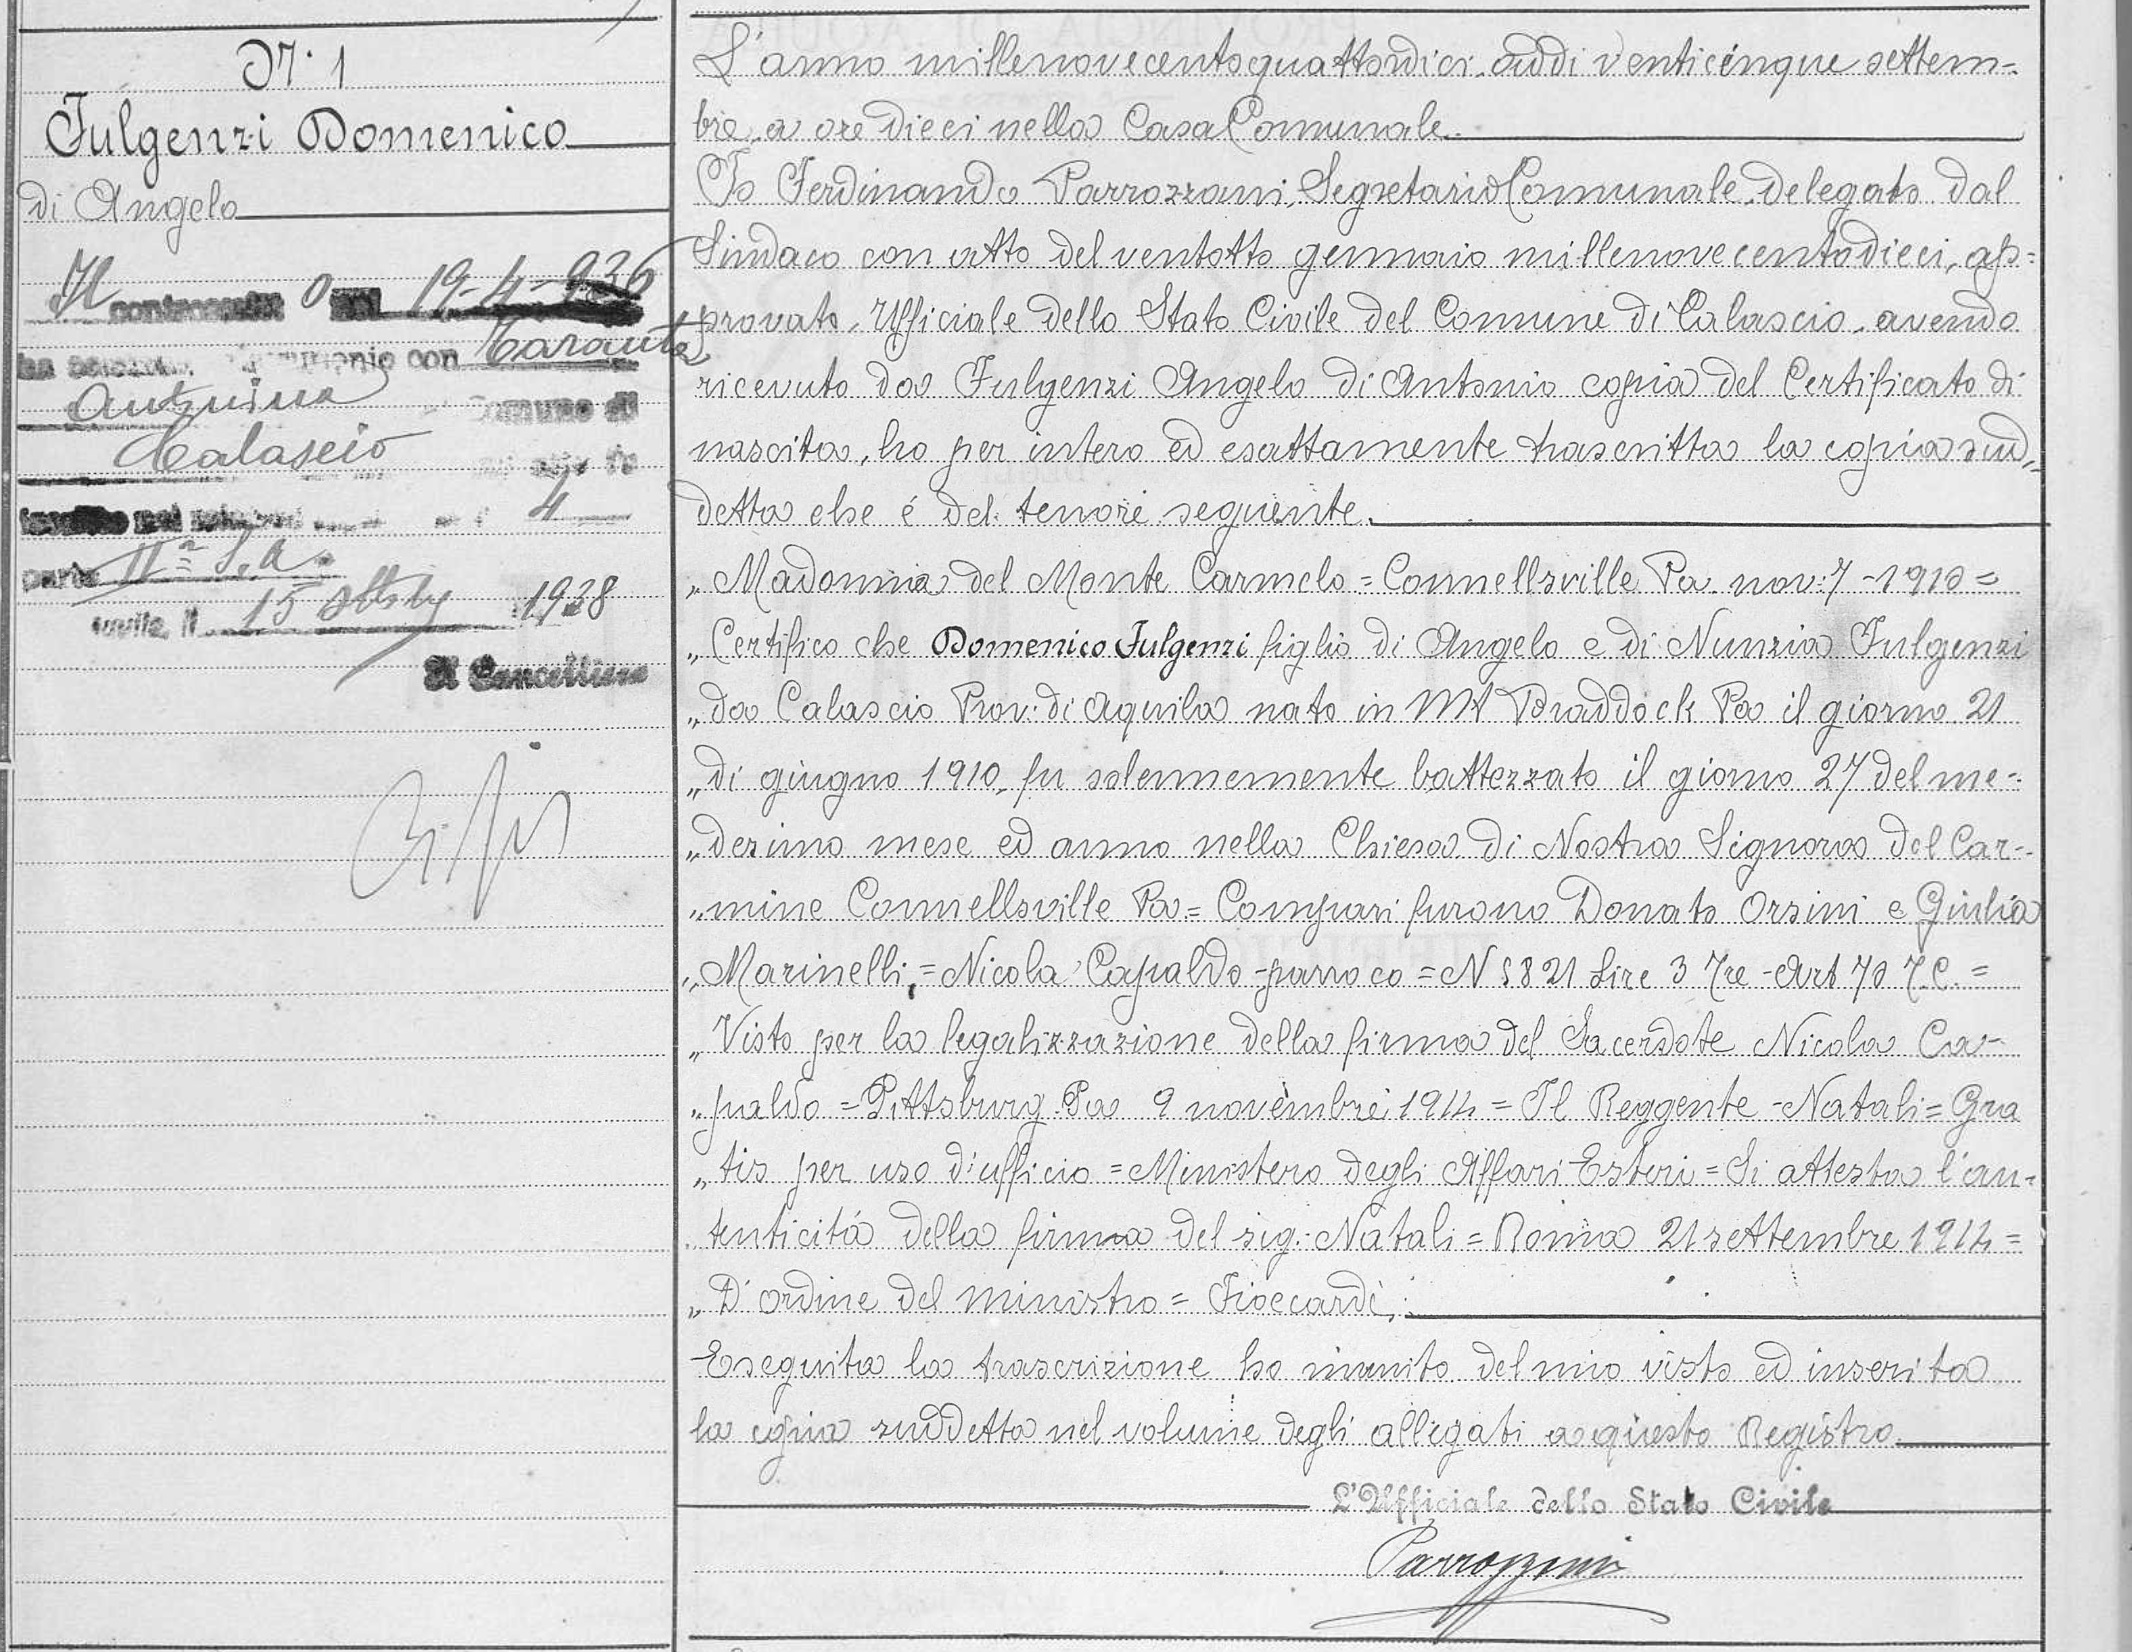 N. 1
Fulgenzi Domenico
di Angelo
Il controscritto 19-4-936
ha matrimonio con Taranta
Antonina Comune di
Calascio
4
parte IIª S. A.
li 15 1938
Il Cancelliere
L'anno millenovecentoquattordici, addì venticinque settem-
bre, a ore dieci nella Casa Comunale.
Io Ferdinando Parrozzani, Segretario Comunale, delegato dal
Sindaco con atto del ventotto gennaio millenovecentodieci, ap=
provato, Ufficiale dello Stato Civile del Comune di Calascio, avendo
ricevuto da Fulgenzi Angelo di Antonio copia del Certificato di
nascita, ho per intero ed esattamente trascritta la copia sud„
detta che é del tenore seguente.
„Madonna del Monte Carmelo = Connellsville Pa. nov: 7 - 1910 =
„Certifico che Domenico Fulgenzi figlio di Angelo e di Nunzia Fulgenzi
„da Calascio Prov: di Aquila nato in Mt Braddock Pa il giorno 21
„di giugno 1910, fu solennemente battezzato il giorno 27 del me-
„desimo mese ed anno nella Chiesa di Nostra Signora del Car-
„mine Connellsville Pa = Compari furono Donato Orsini e Giulia
„Marinelli, = Nicola Capaldo - parroco = N 5821 Lire 3 Tre - Art 70 T.C. =
„Visto per la legalizzazione della firma del Sacerdote Nicola Ca-
„paldo = Pittsburg Pa 9 novembre 1911 = Il Reggente - Natali = Gra
„tis per uso d'ufficio = Ministero degli Affari Esteri = Si attesta l'au-
„tenticitá della firma del sig. Natali = Roma 21 settembre 1914 =
„D'ordine del ministro =
Eseguita la trascrizione ho munito del mio visto ed inserita
la copia suddetta nel volume degli allegati a questo Registro
L'Ufficiale dello Stato Civile
Parrozzani